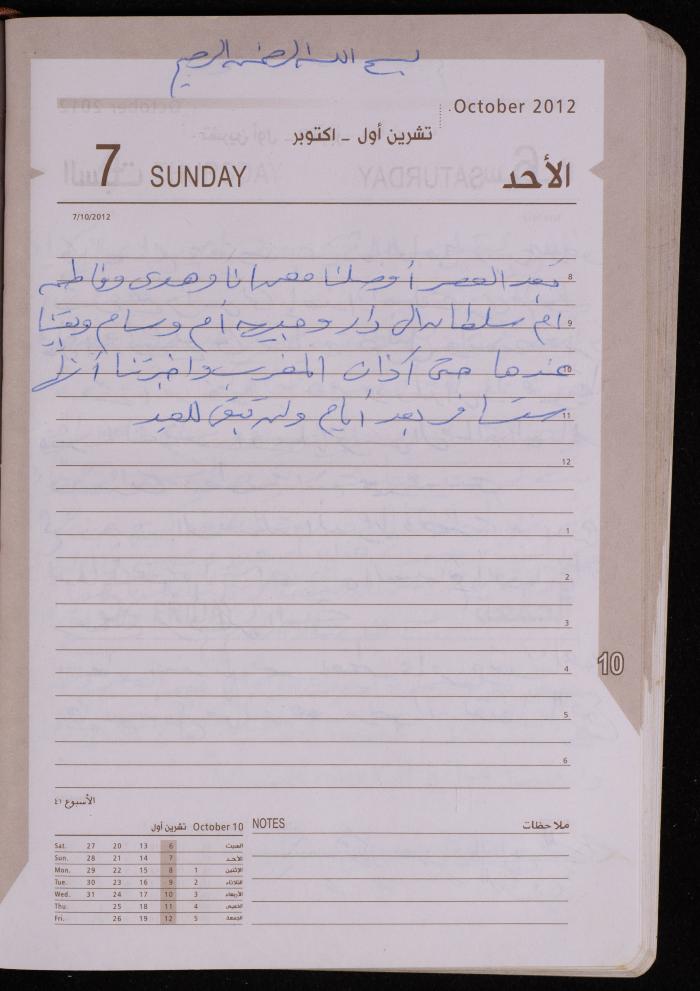 بسم الله الرحمن الرحيم
October 2012
تشرين أول - اكتوبر
7 SUNDAY الأحد
7/10/2012
بعد العصر أوصلنا معد انا وهدى وفاطمه 8
ام سلطان الى دار وجيهه أم وسام وبقينا 9
عندها حتى آذان المغرب واخبرتنا أنها 10
ستسافر بعد أيام ولن تبقى للعيد 11
12
1
2
3
4
5
6
10
الأسبوع ٤١
October 10 تشرين أول
NOTES ملاحظات
Sat. 27 20 13 6 السبت
Sun. 28 21 14 7 الأحد
Mon. 29 22 15 8 1 الإثنين
Tue. 30 23 16 9 2 الثلاثاء
Wed. 31 24 17 10 3 الأربعاء
Thu. 25 18 11 4 الخميس
Fri. 26 19 12 5 الجمعة